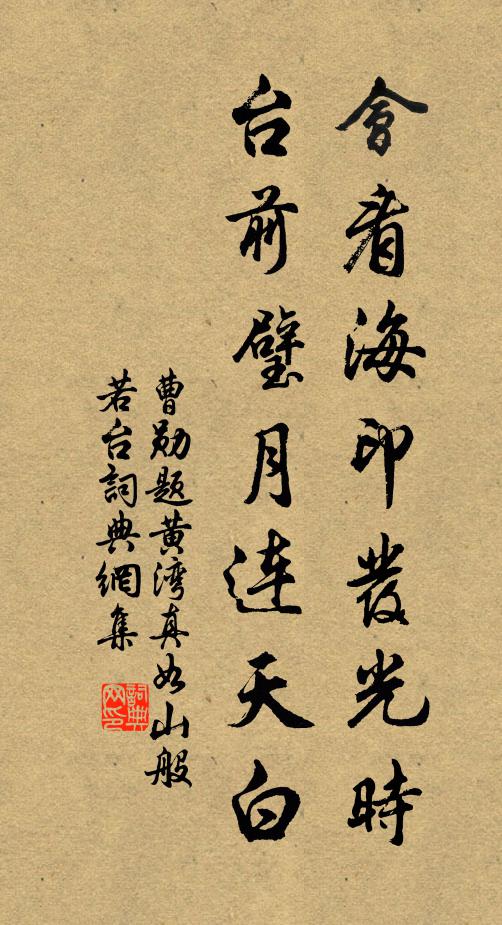 會看海印發光時
台前璧月連天白
曹勛題黄灣真如山般
若台詞典網集
詞典网印